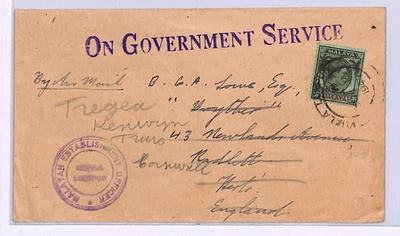 ON GOVERNMENT SERVICE
MALAYA
By Air Mail
B. G. A. Lowe, Esq.,
Tregea
Kenwyn
Truro
43 Newlands Avenue
Cornwall
Radlett
Herts.
England.
MALAYAN ESTABLISHMENT OFFICER
KUALA
LUMPUR